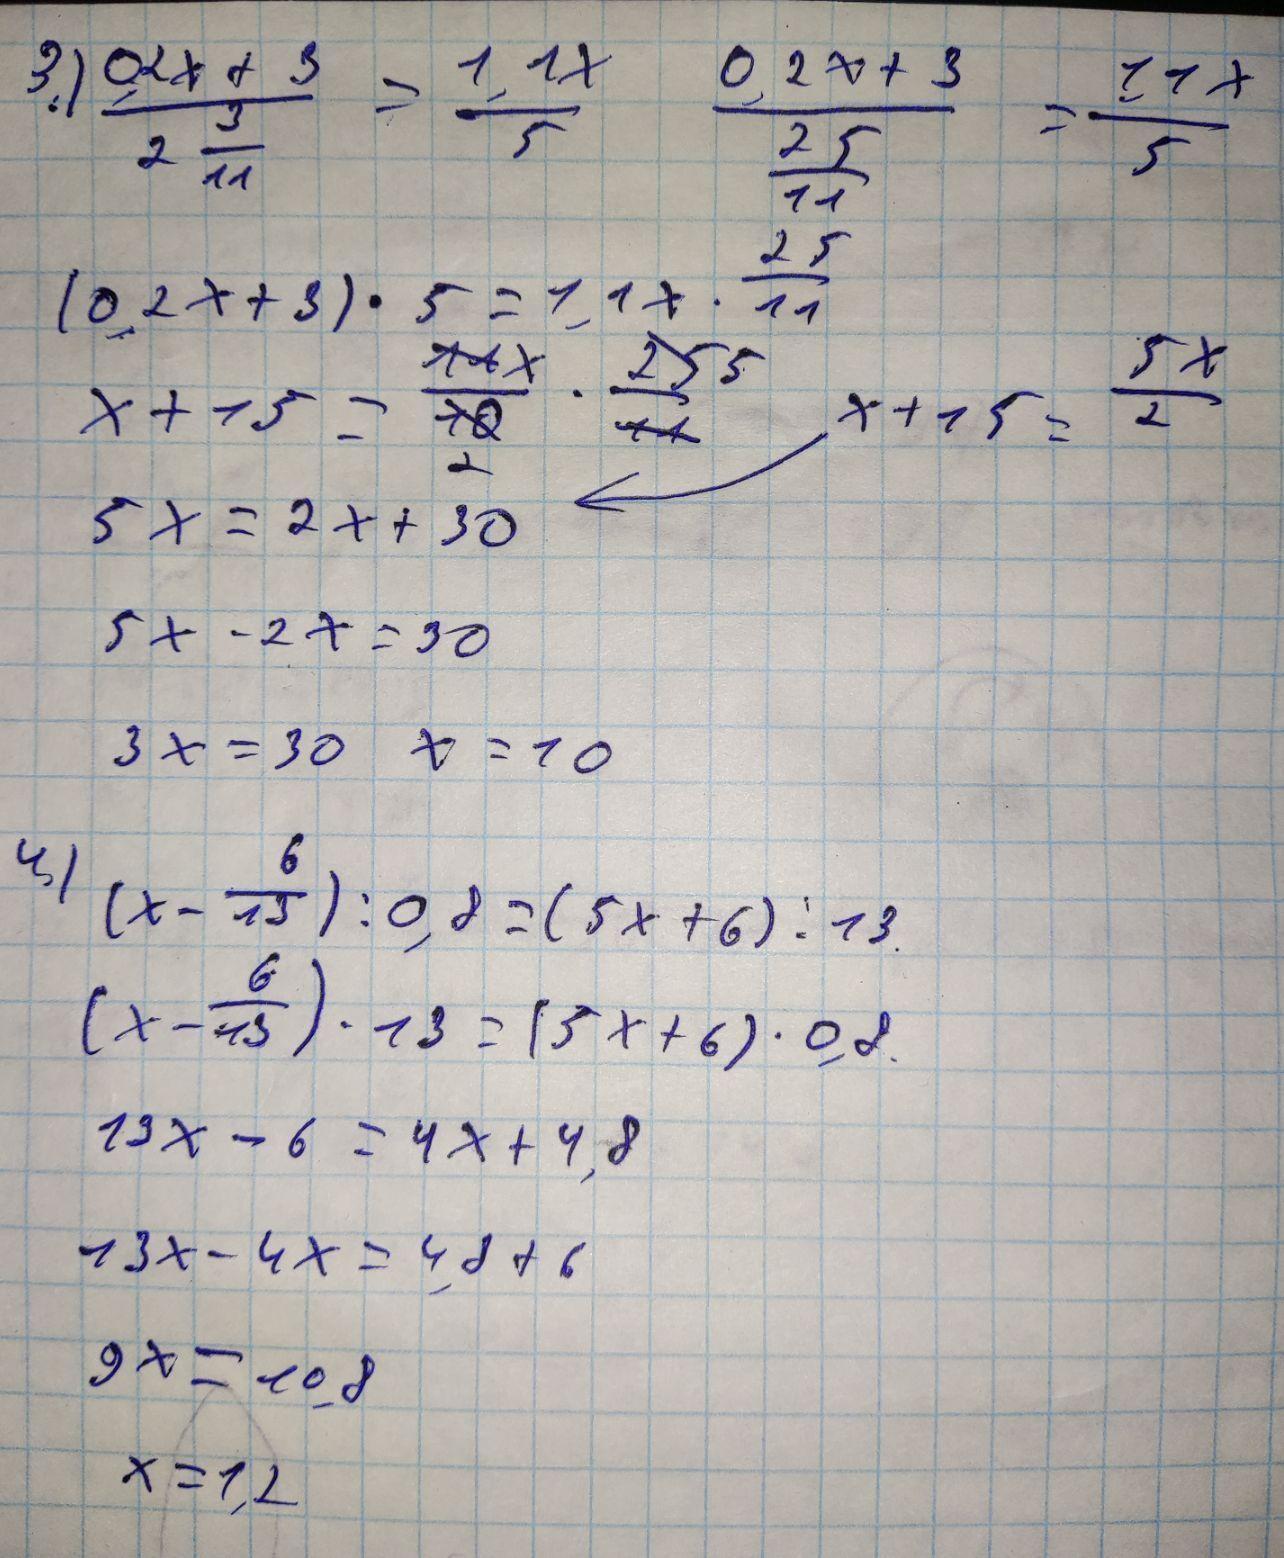 3.) (0,2x + 3)/(2 3/11) = 1,1x/5    (0,2x + 3)/(25/11) = 1,1x/5
(0,2x + 3) · 5 = 1,1x · 25/11
x + 15 = 11x/10 2 · 25 5/11    x + 15 = 5x/2
5x = 2x + 30
5x - 2x = 30
3x = 30   x = 10
4.) (x - 6/13) : 0,8 = (5x + 6) : 13.
(x - 6/13) · 13 = (5x + 6) · 0,8.
13x - 6 = 4x + 4,8
13x - 4x = 4,8 + 6
9x = 10,8
x = 1,2